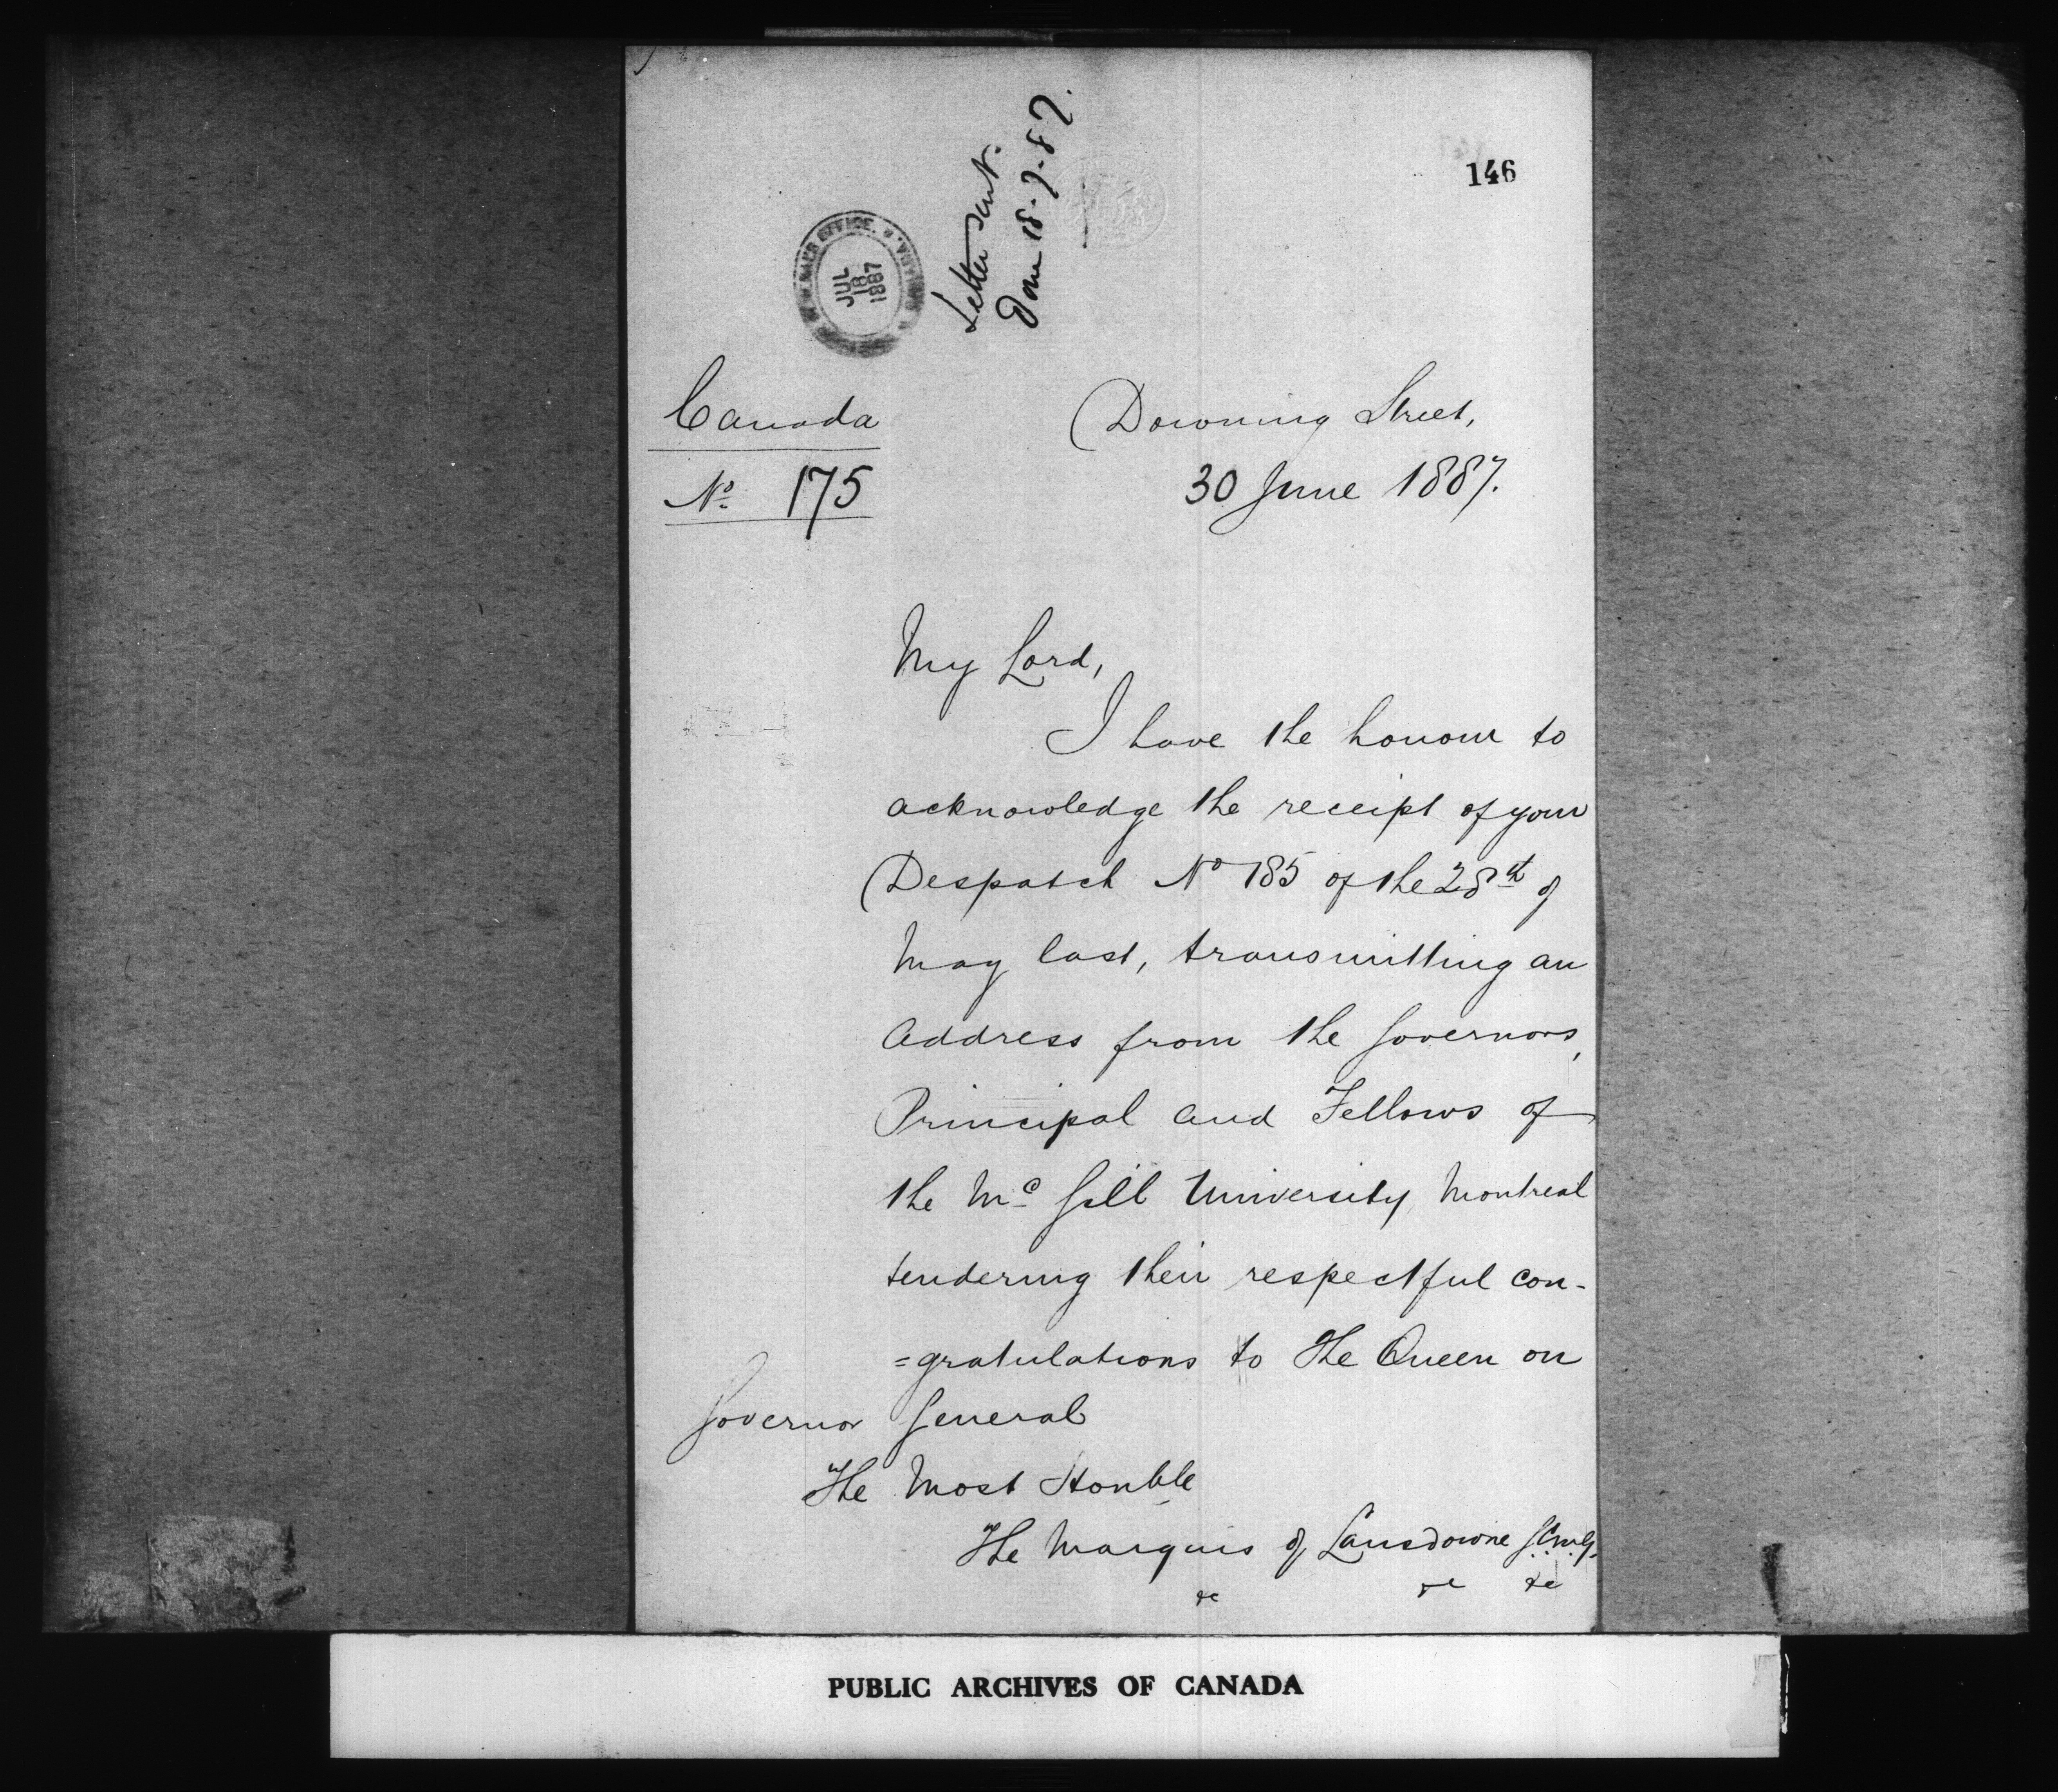 146
Letter sent.
18-7-87.
JUL
18
1887
Canada
No 175
Downing Street,
30 June 1887.
My Lord,
I have the honour to
acknowledge the receipt of your
Despatch No 185 of the 28th of
May last, transmitting an
Address from the Governors,
Principal and Fellows of
the Mc Gill University, Montreal
tendering their respectful con-
=gratulations to The Queen on
Governor General
The Most Honble
The Marquis of Lansdowne G.C.M.G.
&c &c &c
PUBLIC ARCHIVES OF CANADA